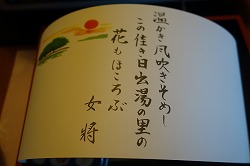 温かき風吹きそめし
この佳き日出湯の里の
花もほころぶ
女将